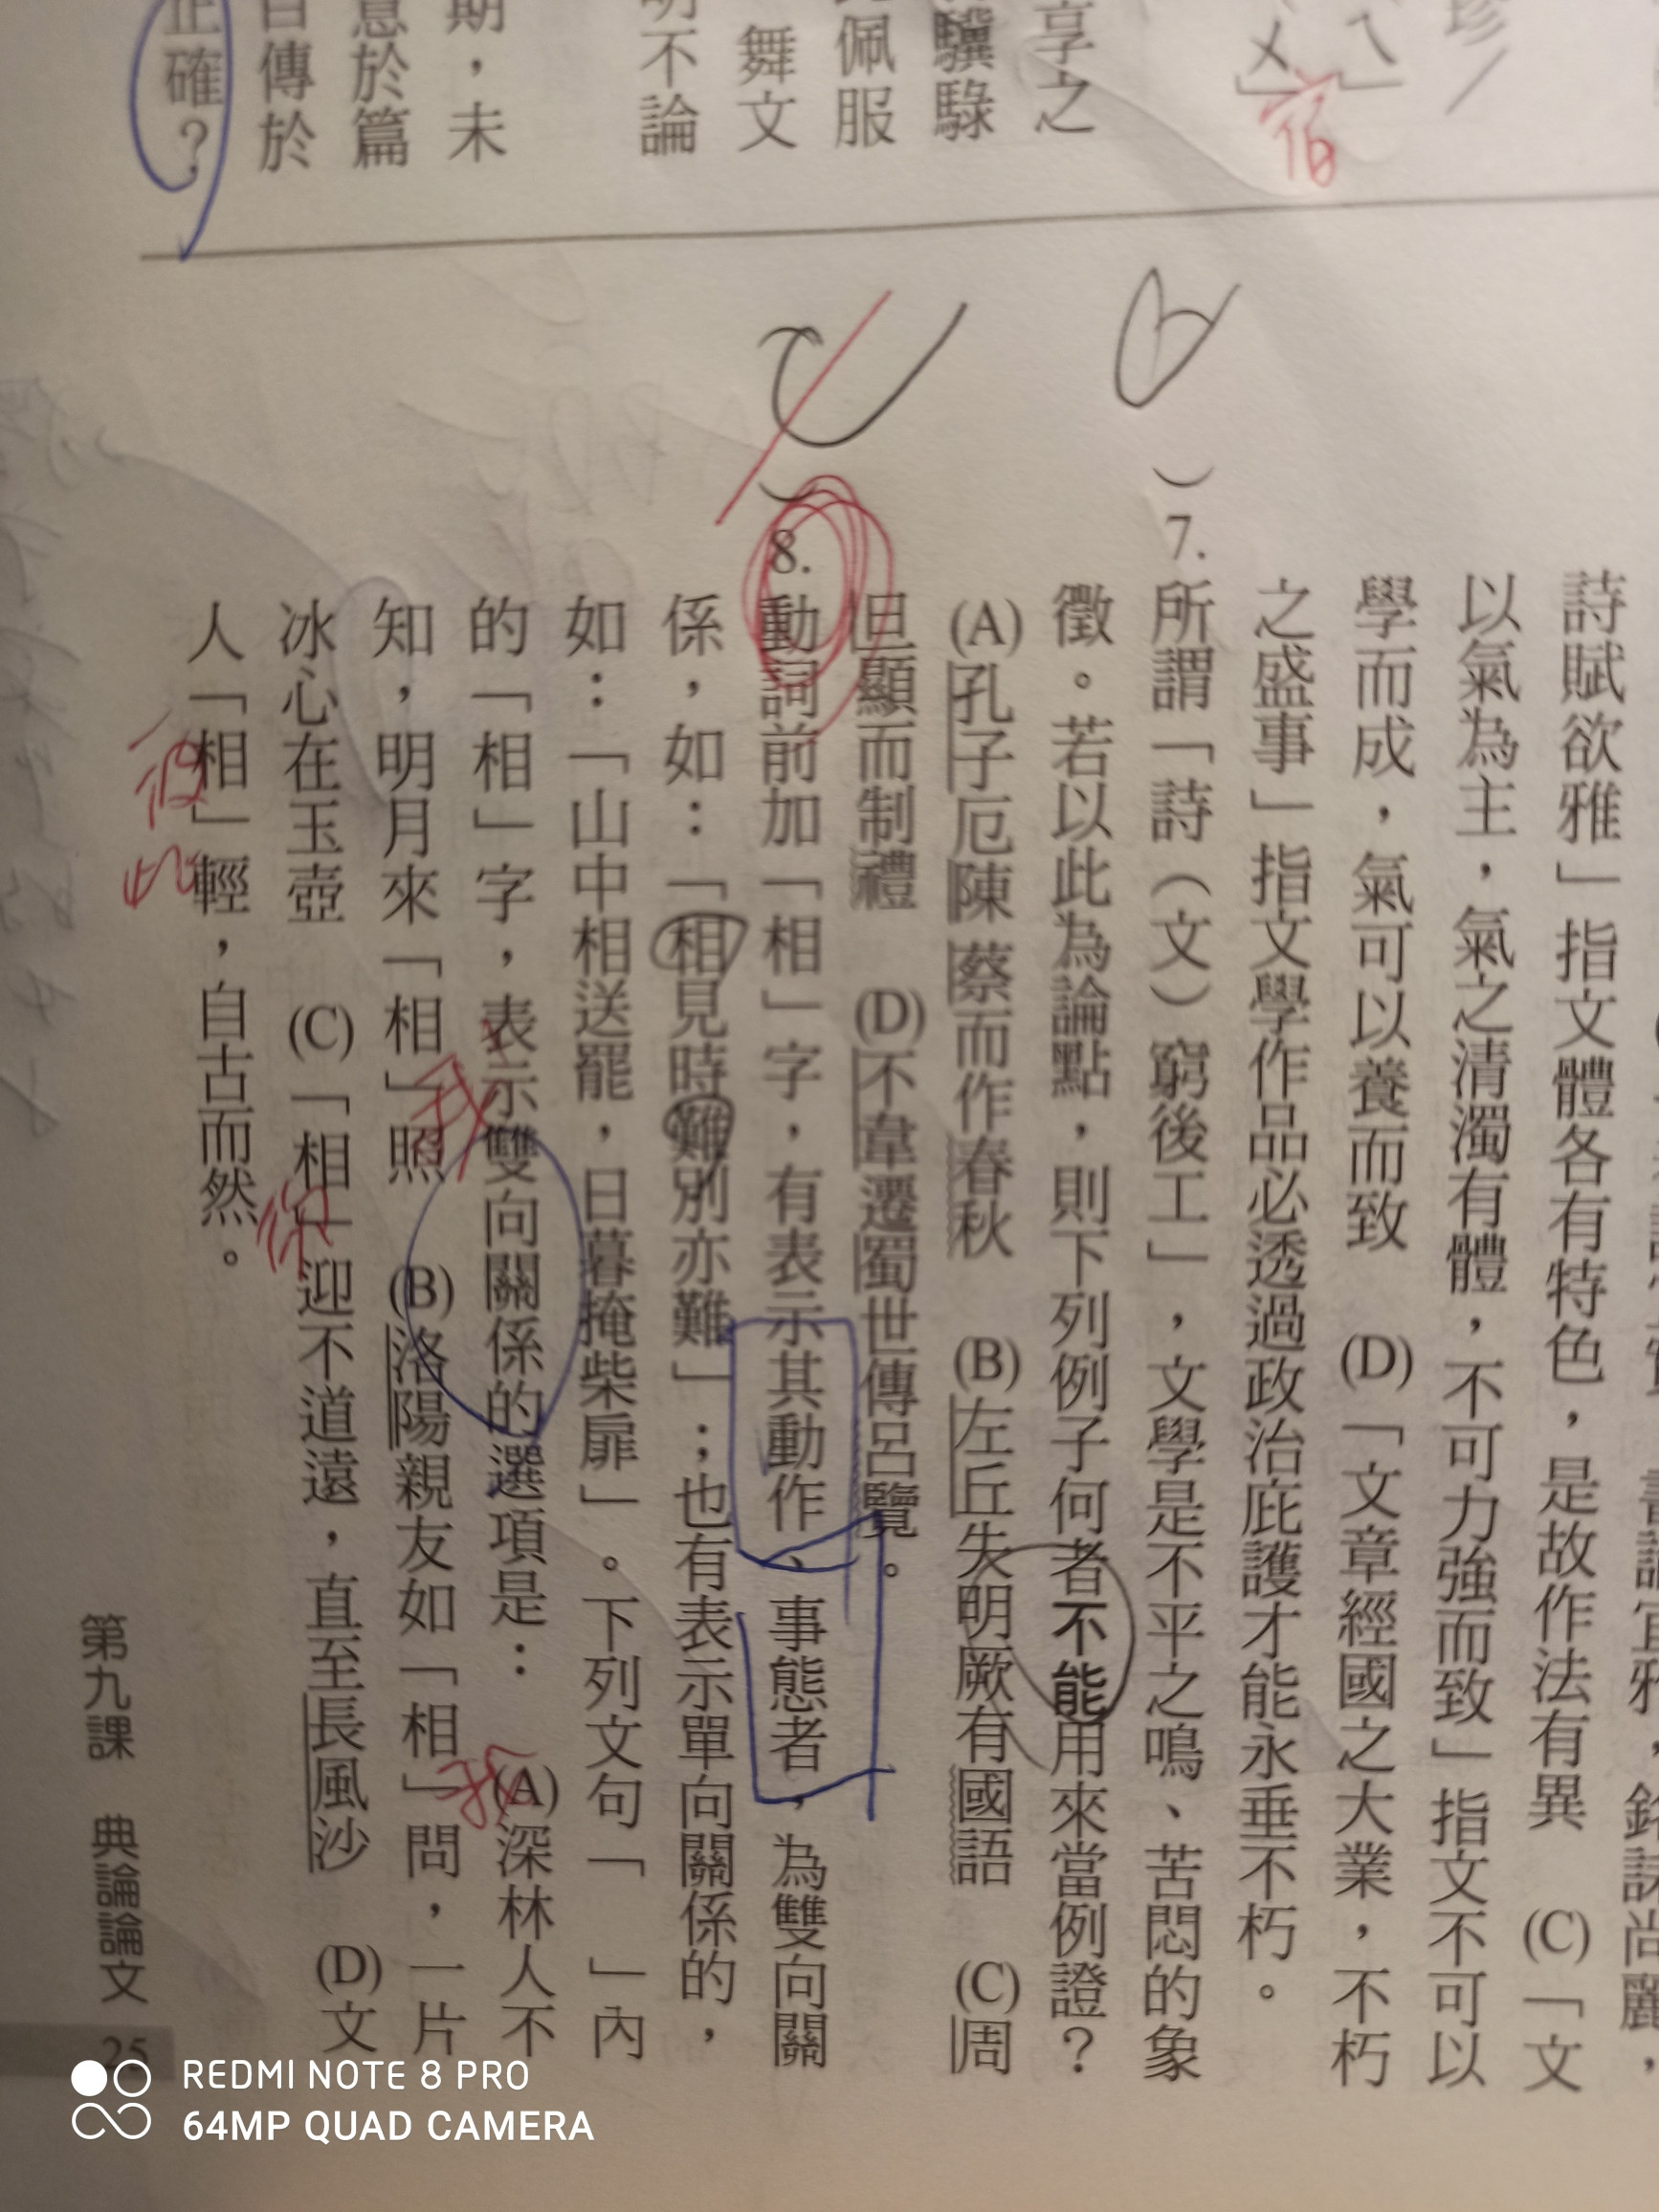 享之
驥騄
佩服
舞文
明不論
期，未
意於篇
自傳於
正確？
詩賦欲雅」指文體各有特色，是故作法有異　(C)「文
以氣為主，氣之清濁有體，不可力強而致」指文不可以
學而成，氣可以養而致　(D)「文章經國之大業，不朽
之盛事」指文學作品必透過政治庇護才能永垂不朽。
7.所謂「詩（文）窮後工」，文學是不平之鳴、苦悶的象
徵。若以此為論點，則下列例子何者不能用來當例證？
(A)孔子厄陳蔡而作春秋　(B)左丘失明厥有國語　(C)周
旦顯而制禮　(D)不韋遷蜀世傳呂覽。
C
8.動詞前加「相」字，有表示其動作、事態者，為雙向關
係，如：「相見時難別亦難」；也有表示單向關係的，
如：「山中相送罷，日暮掩柴扉」。下列文句「　」內
的「相」字，表示雙向關係的選項是：　(A)深林人不
知，明月來「相」照　(B)洛陽親友如「相」問，一片
冰心在玉壺　(C)「相」迎不道遠，直至長風沙　(D)文
人「相」輕，自古而然。
我
我
你
彼此
第九課　典論論文　25
REDMI NOTE 8 PRO
64MP QUAD CAMERA